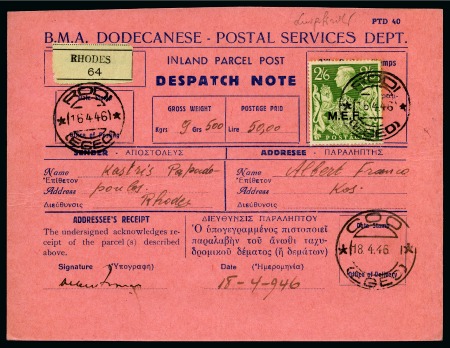 PTD 40
B.M.A. DODECANESE - POSTAL SERVICES DEPT.
RHODES
64
INLAND PARCEL POST
DESPATCH NOTE
2/6 2/6
M.E.F.
RODI
16.4.46
(EGEO)
GROSS WEIGHT
Kgrs 9 Grs 500
POSTAGE PAID
Lire 50,00
RODI
16.4.46
(EGEO)
SENDER - ΑΠΟΣΤΟΛΕΥΣ
ADDRESSEE - ΠΑΡΑΛΗΠΤΗΣ
Name Kastris Papado-
Ἐπίθετον
Address poulos
Διεύθυνσις Rhodes
Name Albert Franco
Ἐπίθετον
Address Kos.
Διεύθυνσις
ADDRESSEE'S RECEIPT
The undersigned acknowledges
receipt of the parcel(s) described
above.
ΔΙΕΥΘΗΝΣΙΣ ΠΑΡΑΛΗΠΤΟΥ
Ὁ ὑπογεγραμμένος πιστοποιεῖ
παραλαβὴν τοῦ ἄνωθι ταχυ-
δρομικοῦ δέματος (ἢ δεμάτων)
Date Stamp
COO
18.4.46
(EGEO)
Office of Delivery
Signature (Ὑπογραφή)
Date (Ἡμερομηνία)
18-4-946